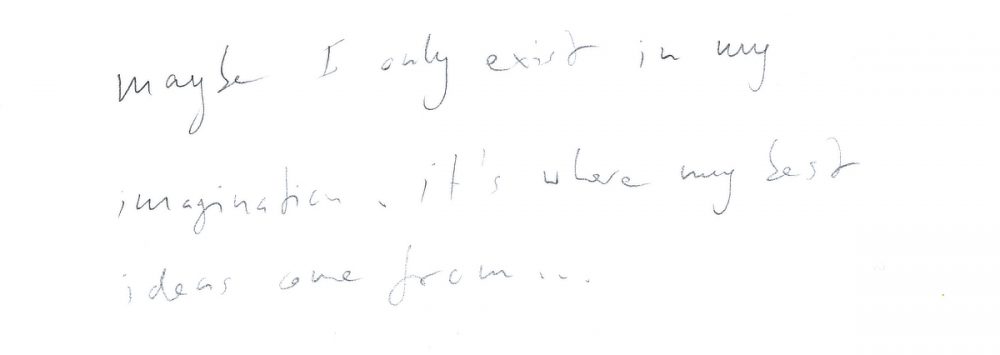 maybe I only exist in my
imagination. it's where my best
ideas come from...